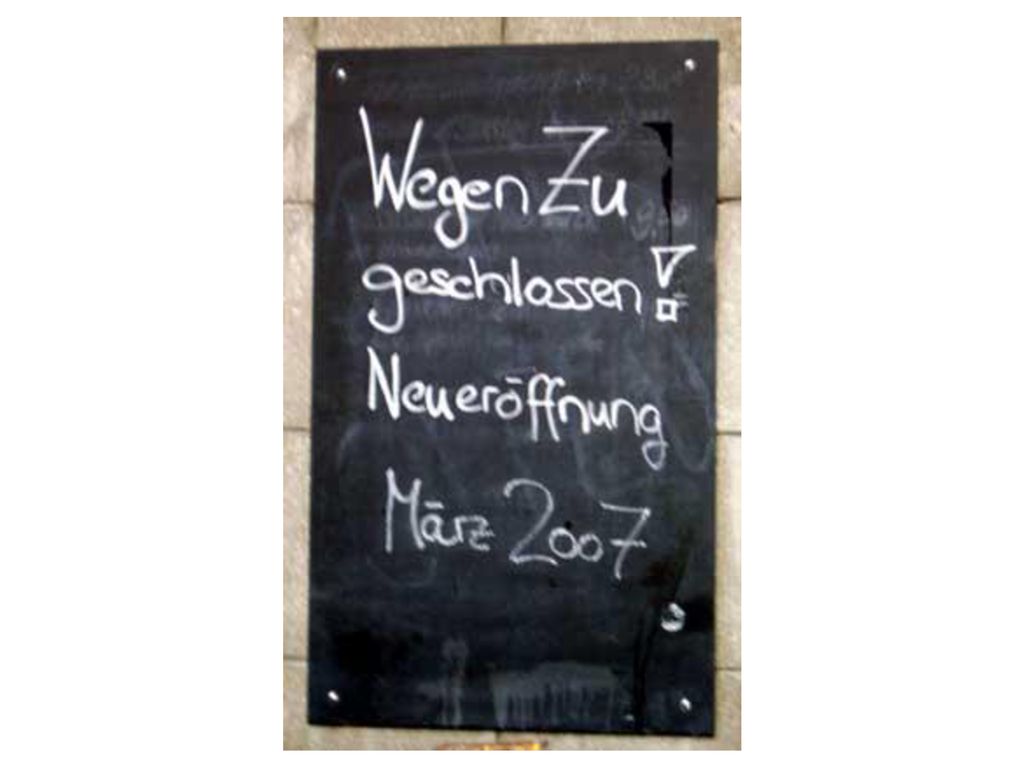 Wegen Zu
geschlossen!
Neueröffnung
März 2007